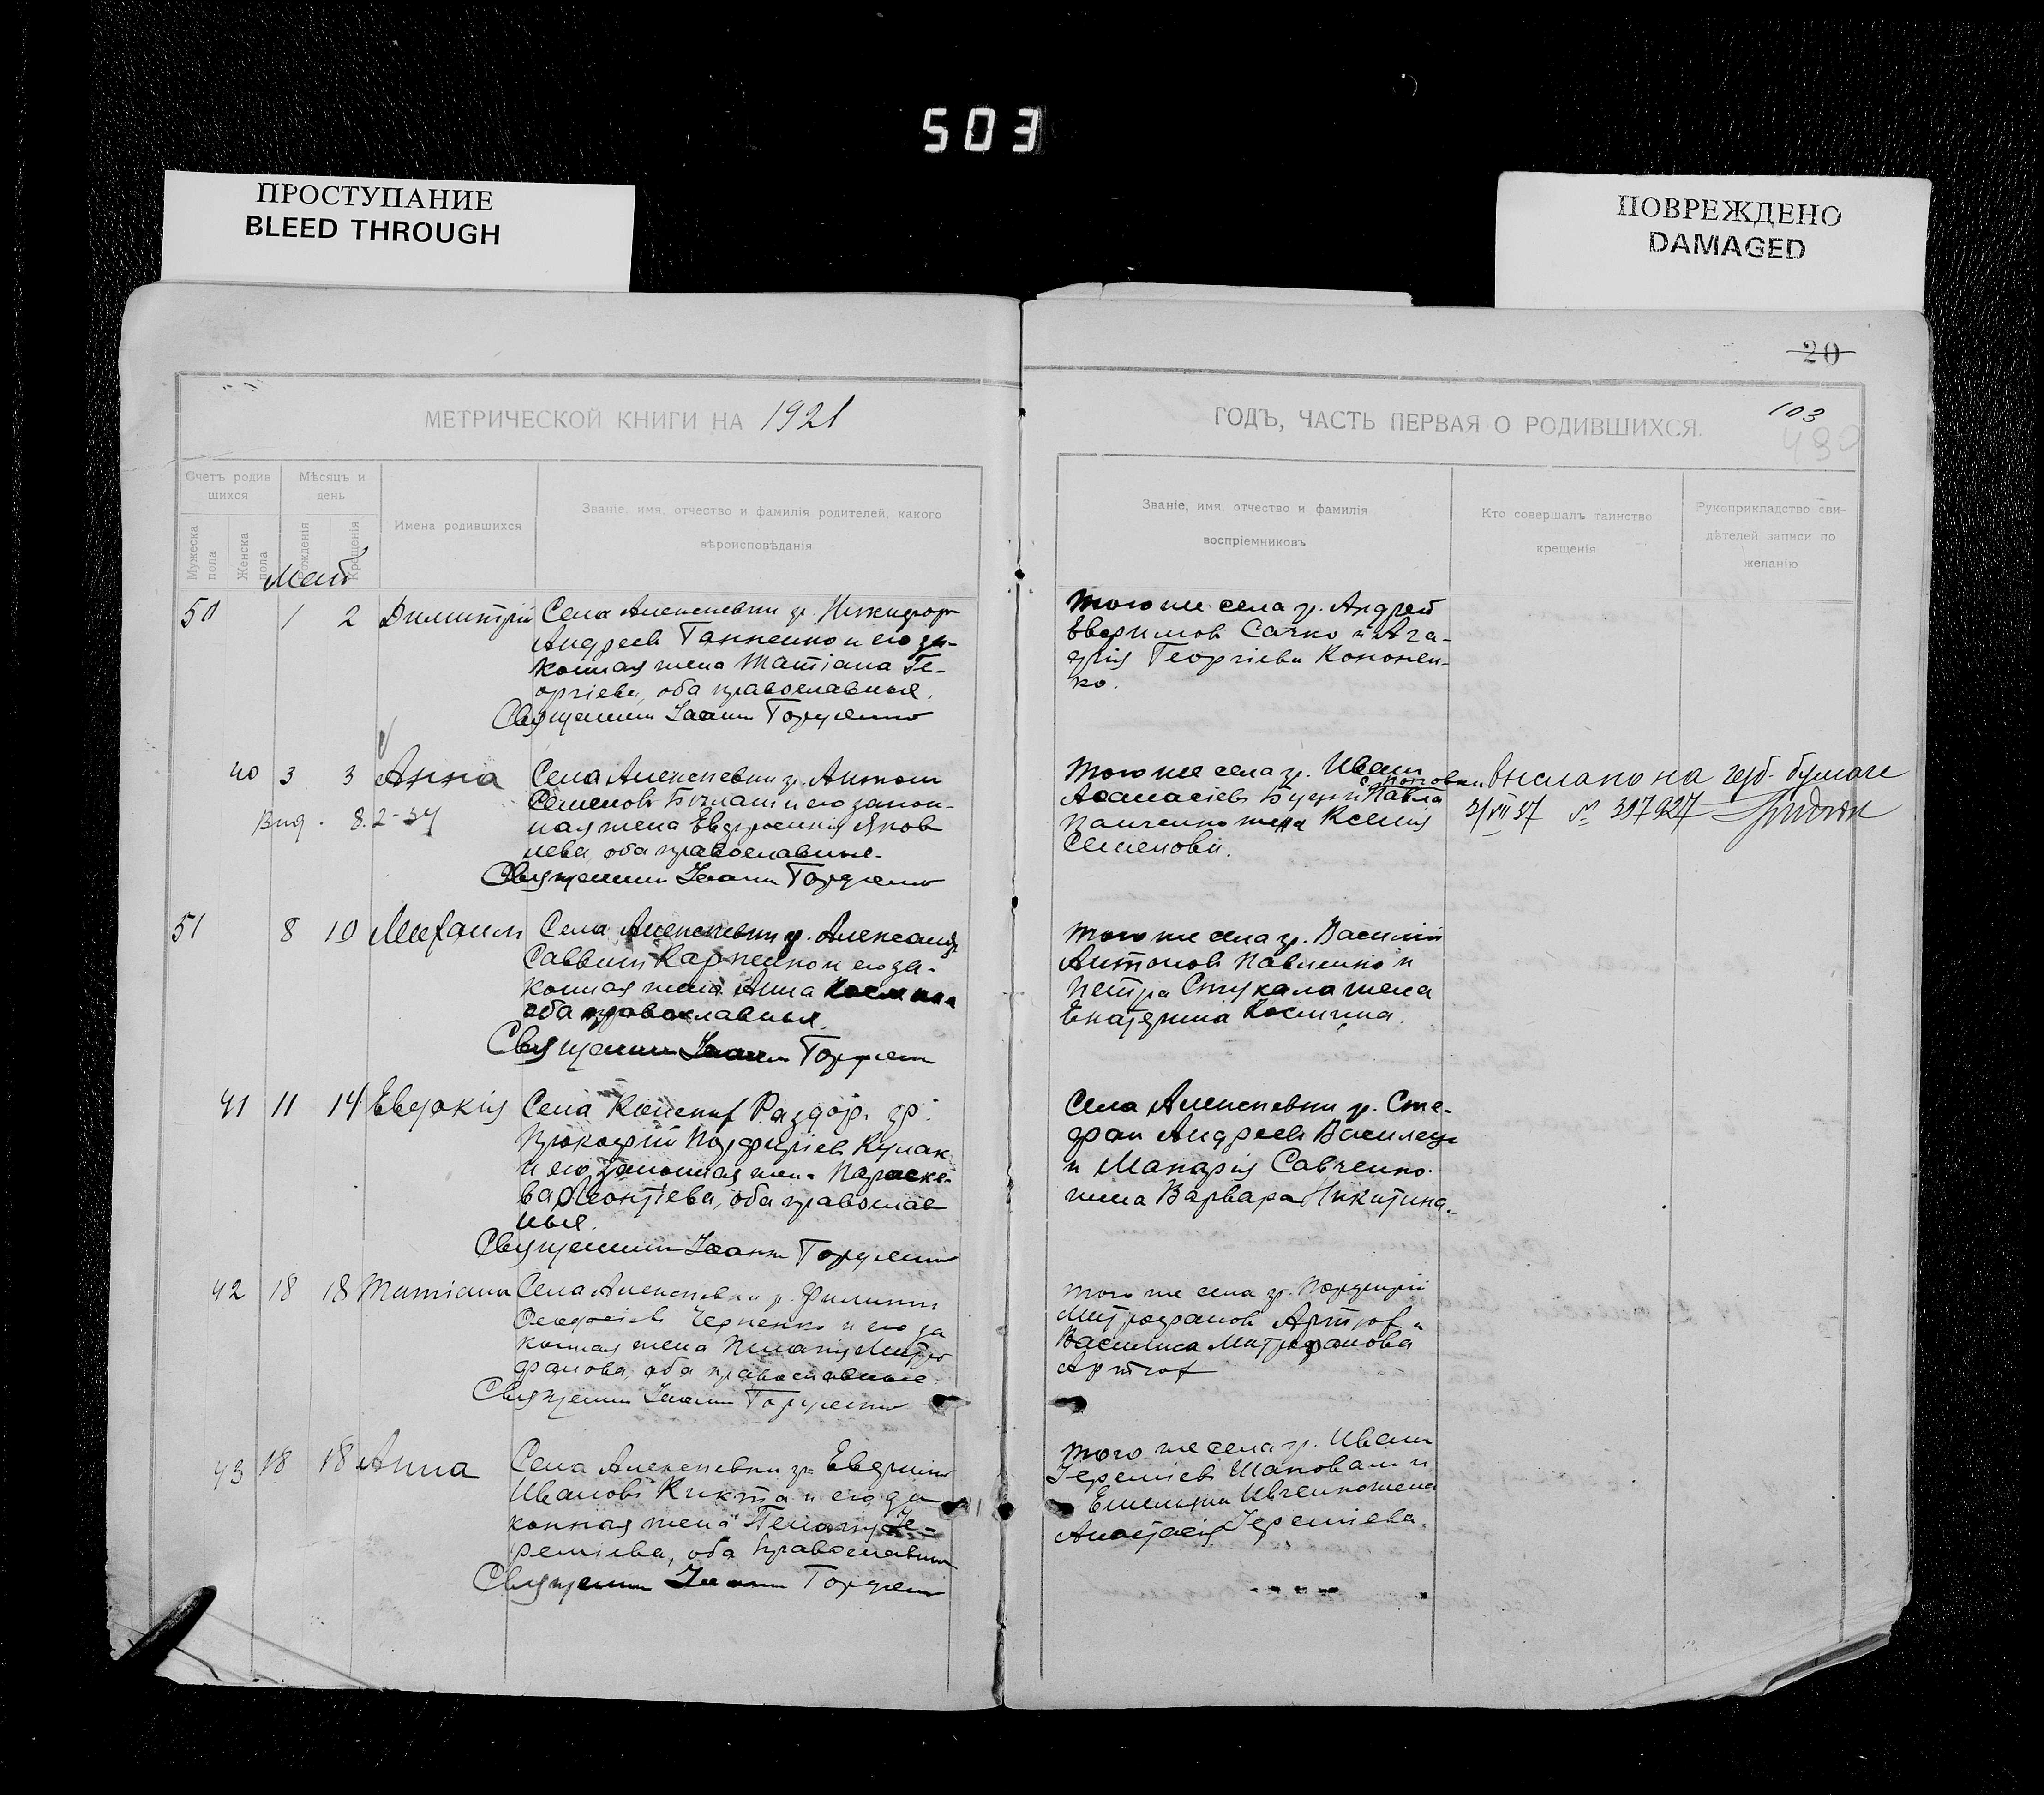 503
ПРОСТУПАНИЕ
BLEED THROUGH
ПОВРЕЖДЕНО
DAMAGED
20
103
490
МЕТРИЧЕСКОЙ КНИГИ НА 1921
ГОДЪ, ЧАСТЬ ПЕРВАЯ О РОДИВШИХСЯ.
Счетъ родив
шихся
Мужеска
пола
Женска
пола
Мѣсяцъ и
день
рожденія
Крещенія
Имена родившихся
Званіе, имя, отчество и фамилія родителей, какого
вѣроисповѣданія
Званіе, имя, отчество и фамилія
воспріемниковъ
Кто совершалъ таинство
крещенія
Рукоприкладство сви-
дѣтелей записи по
желанію
Май
50 1 2 Димитрій
Села Алексеевки гр. Никифор
Андреев и его за-
конная жена Татiана Ге-
оргiева, оба православныя.
Священник Iоанн Гордиенко
Того же села гр. Андрей
Евфимов Сачко и Ага-
фiя Георгiева Кононен-
ко.
40 3 3 Анна
Выд. 8.2-34
Села Алексеевки гр. Антон
Семенов и его закон-
ная жена Евфросинiя Яков
лева, оба православные.
Священник Iоанн Гордиенко
Того же села гр. Иван
Афанасiев и Павла
Панченко жена Ксения
Семенова.
выслано на герб. бумаге
31/VII 37 № 397927
51 8 10 Михаил
Села Алексеевки гр. Александр
Саввин Карпенко и его за-
конная жена Анна Космина
оба православныя.
Священник Iоанн Гордиен
Того же села гр. Василiй
Антонов Павленко и
Петра Стукала жена
Екатерина Космина.
41 11 14 Евдокiя
Села Раздор. гр.
Прокофiй Порфирiев Кулак
и его законная жена Параске-
ва Леонтiева, оба православ
ныя.
Священник Iоанн Гордиенко
Села Алексеевки гр. Сте-
фан Андреев
и Макарiя Савченко
жена Варвара Никитина.
42 18 18 Татiана
Села Алексеевки гр. Филипп
Феодосiев Черненко и его за
конная жена Пелагiя Митро
фанова, оба православные
Священник Iоанн Гордиенко
Того же села гр. Порфирiй
Митрофанов и
Василиса Митрофанова
43 18 18 Анна
Села Алексеевки гр. Евфимий
Иванов Кикта и его за
конная жена Пелагiя Iе-
ремiева, оба православныя
Священник Iоанн Гордиен
Того же села гр. Иван
Iеремiев Шаповал и
Емельяна Ивченко жена
Анастасiя Iеремiева.